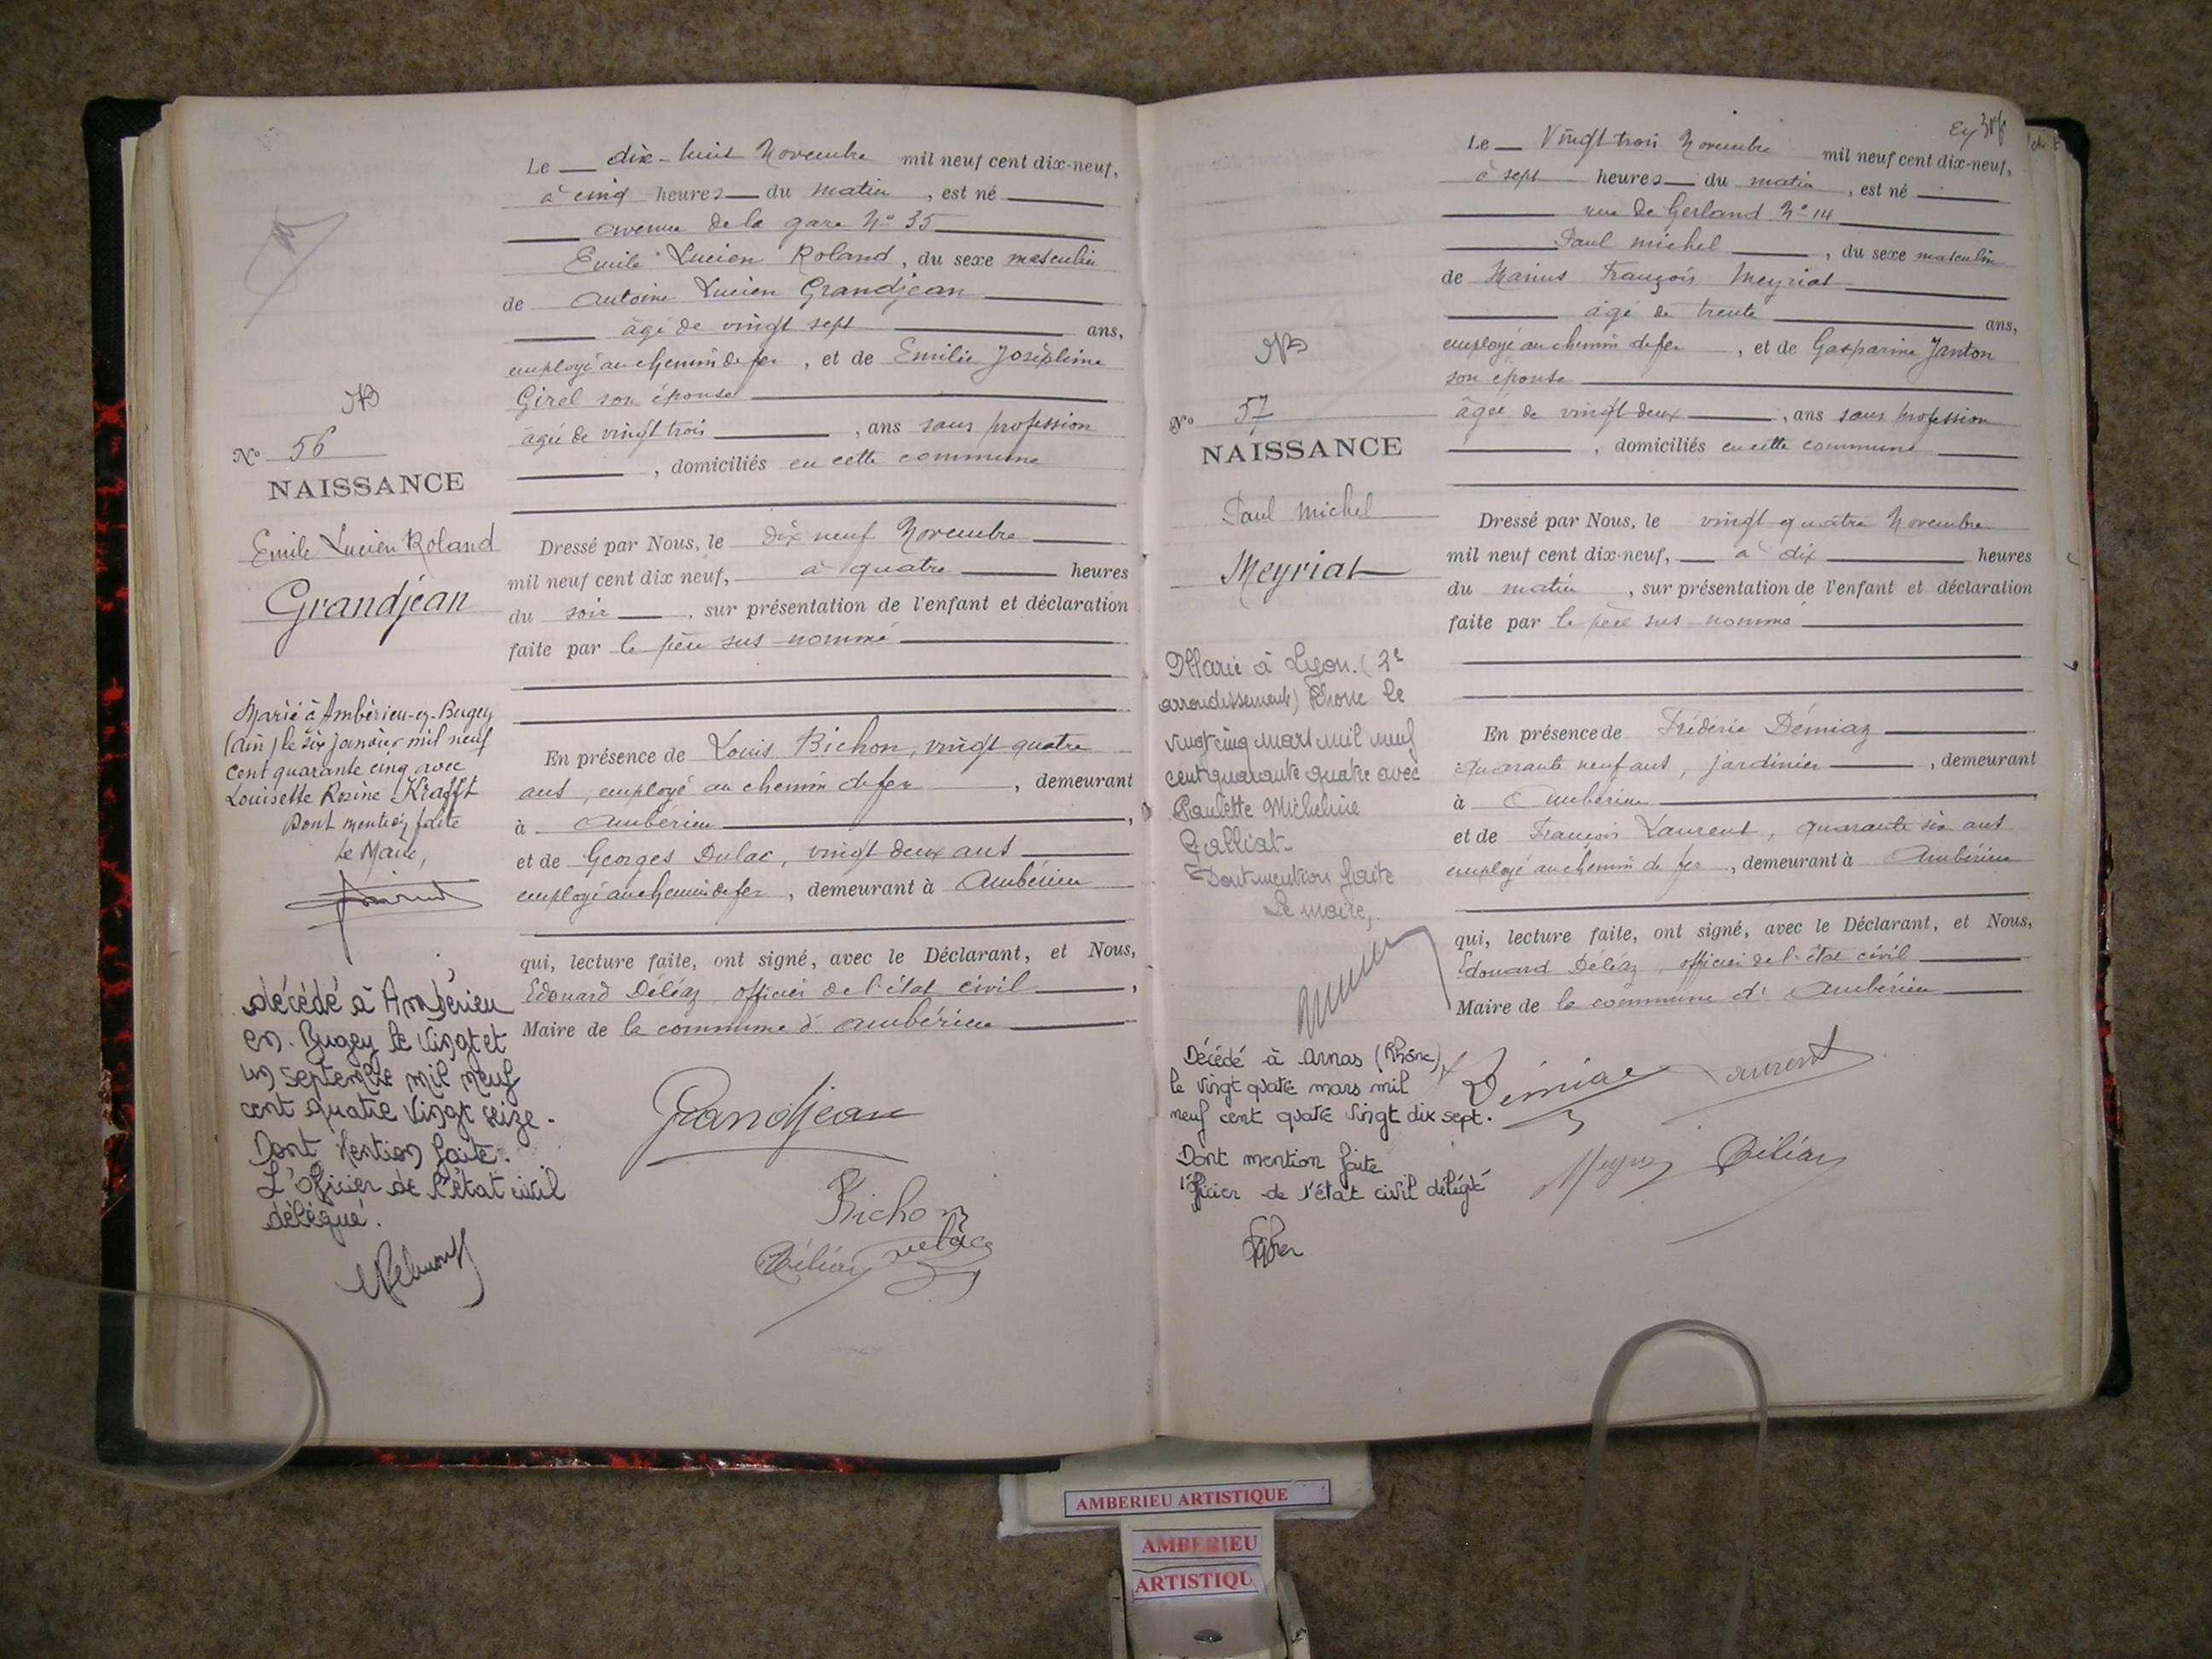 Le dix-huit Novembre mil neuf cent dix-neuf,
à cinq heures du matin, est né
avenue de la gare No 35
Emile Lucien Roland, du sexe masculin
de Antoine Lucien Grandjean
âgé de vingt sept ans,
employé au chemin de fer, et de Emilie Joséphine
Girel son épouse
âgée de vingt trois, ans sans profession
, domiciliés en cette commune
No 56
NAISSANCE
Emile Lucien Roland
Grandjean
Dressé par Nous, le dix neuf Novembre
mil neuf cent dix neuf, à quatre heures
du soir, sur présentation de l'enfant et déclaration
faite par le père sus-nommé
Marié à Ambérieu-en-Bugey
(Ain) le six janvier mil neuf
cent quarante cinq avec
Louisette Rosine Krafft
Dont mention faite
Le Maire,
En présence de Louis Bichon, vingt quatre
ans, employé au chemin de fer, demeurant
à Ambérieu,
et de Georges Dulac, vingt deux ans
employé au chemin de fer, demeurant à Ambérieu
qui, lecture faite, ont signé, avec le Déclarant, et Nous,
Edouard Déléaz, officier de l'état civil,
Maire de la commune d'Ambérieu
décédé à Ambérieu
en-Bugey le vingt et
un septembre mil neuf
cent quatre vingt seize.
Dont Mention faite.
L'officier de l'état civil
délégué.
Grandjean
Bichon
Déléaz Dulac
Le Vingt trois Novembre mil neuf cent dix-neuf,
à sept heures du matin, est né
rue de Gerland No 14
Paul Michel, du sexe masculin
de Marius François Meyriat
âgé de trente ans,
employé au chemin de fer, et de Gasparine Janton
son épouse
âgée de vingt deux, ans sans profession
, domiciliés en cette commune
No 57
NAISSANCE
Paul Michel
Meyriat
Dressé par Nous, le vingt quatre Novembre
mil neuf cent dix-neuf, à dix heures
du matin, sur présentation de l'enfant et déclaration
faite par le père sus-nommé
Marié à Lyon (3e
arrondissement) Rhône le
vingt cinq mars mil neuf
cent quarante quatre avec
Paulette Micheline
Galliat-
Dont mention faite
Le maire,
En présence de Frédéric Démiaz
quarante neuf ans, jardinier, demeurant
à Ambérieu
et de François Laurent, quarante six ans
employé au chemin de fer, demeurant à Ambérieu
qui, lecture faite, ont signé, avec le Déclarant, et Nous,
Edouard Déléaz, officier de l'état civil
Maire de la commune d'Ambérieu
Décédé à Arnas (Rhône)
le vingt quatre mars mil
neuf cent quatre vingt dix sept.
Dont mention faite
l'officier de l'état civil délégué
Démiaz Laurent
Déléaz
AMBERIEU ARTISTIQUE
AMBERIEU
ARTISTIQU